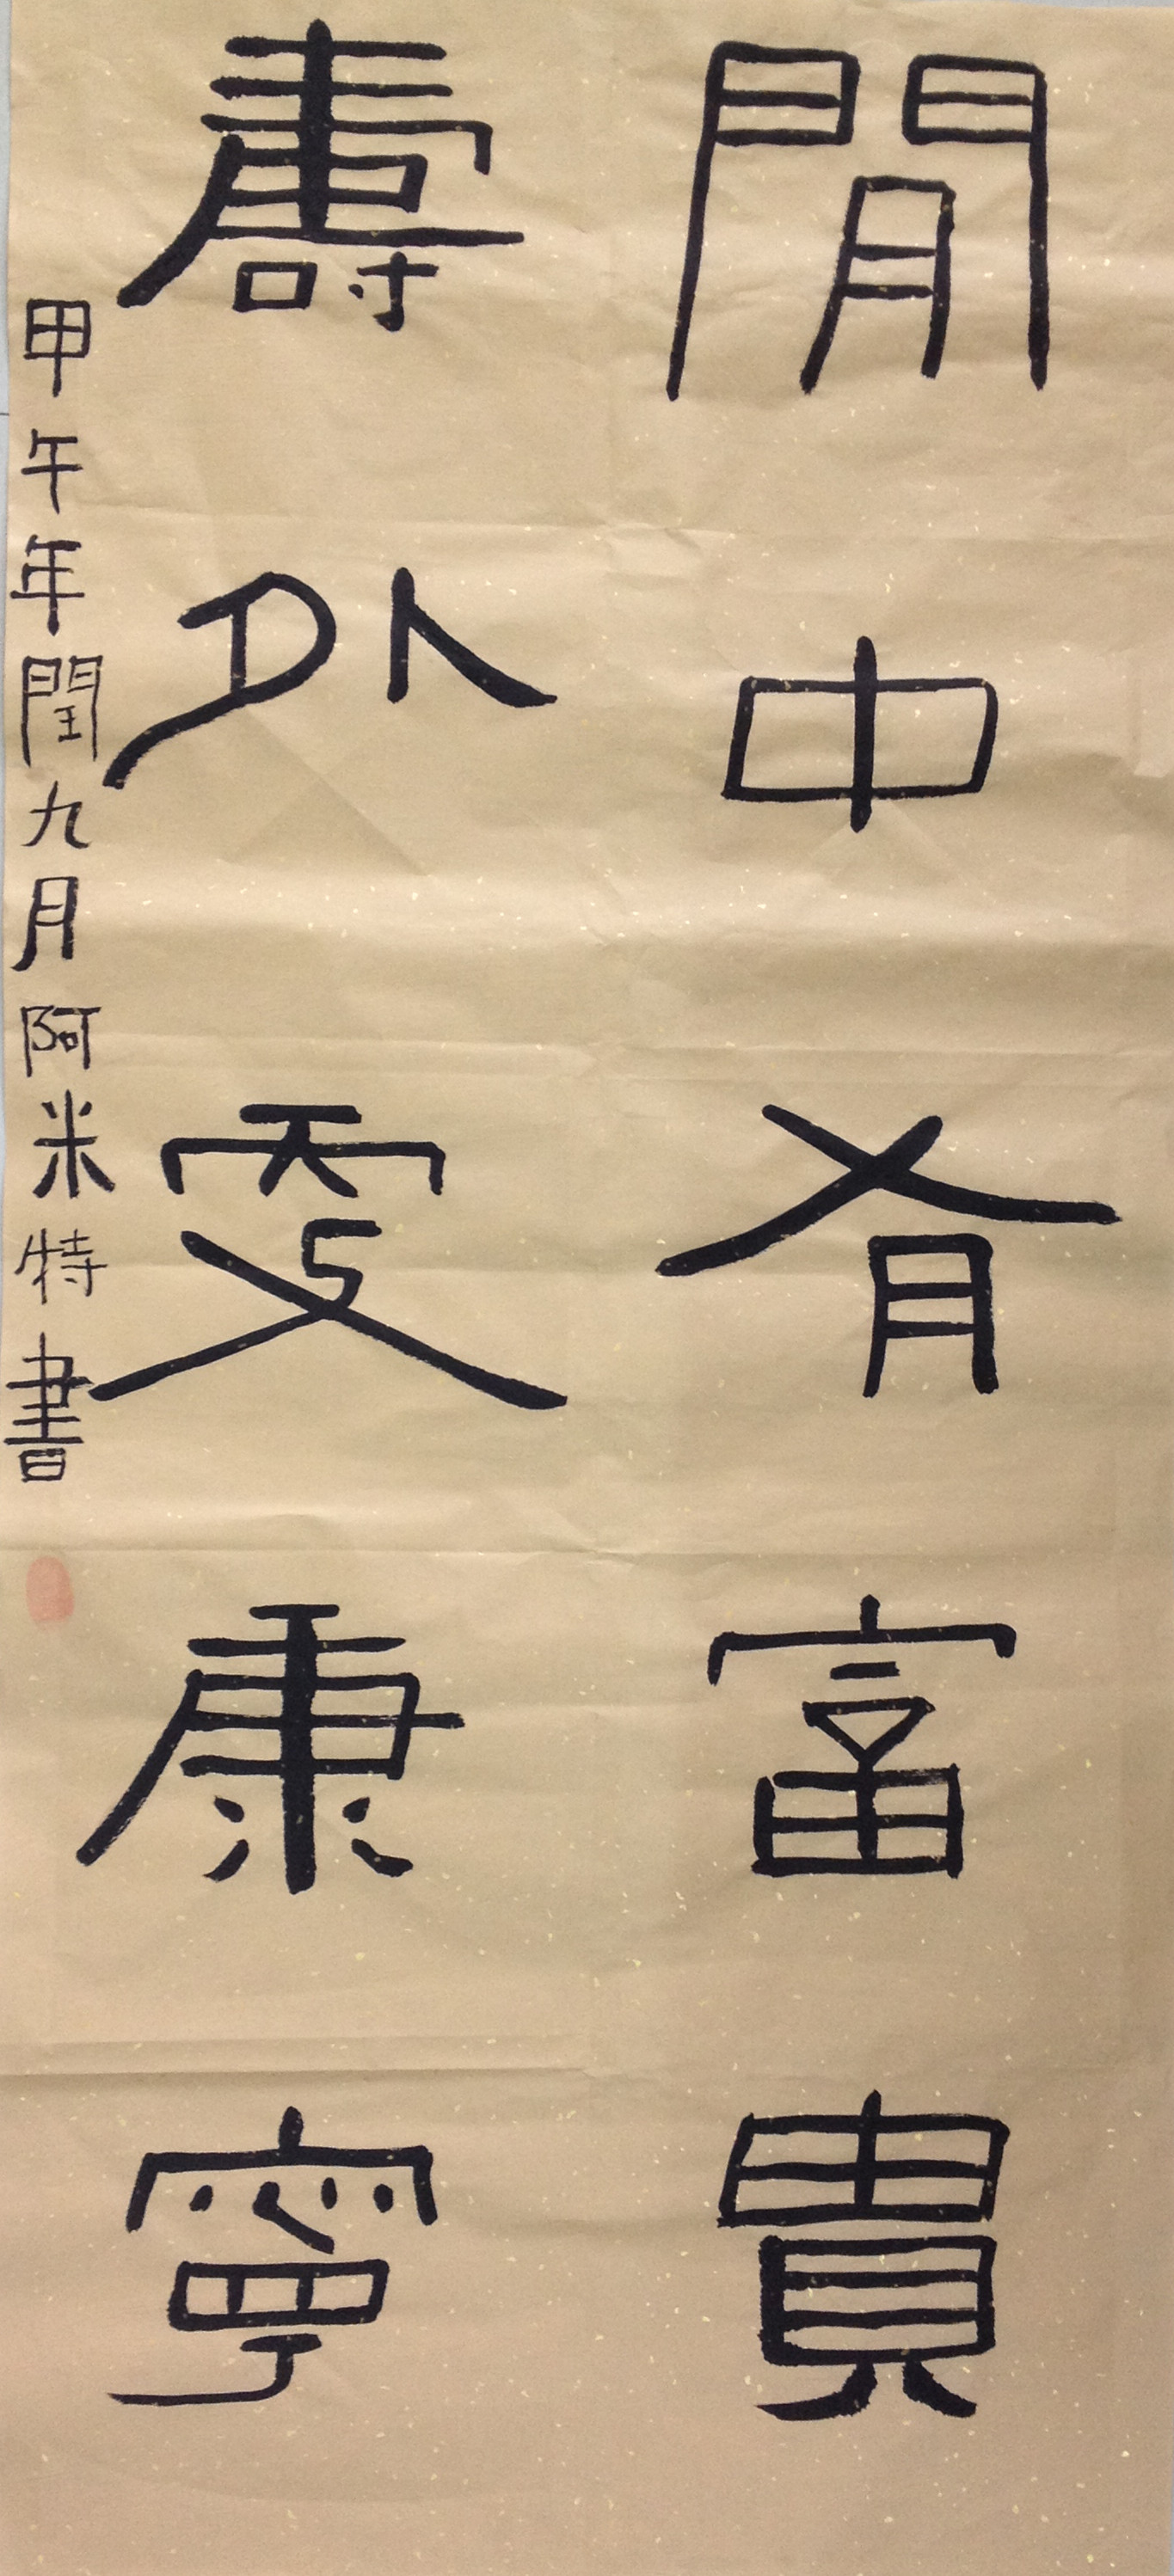 閒中有富貴
壽外更康寧
甲午年閏九月阿米特書